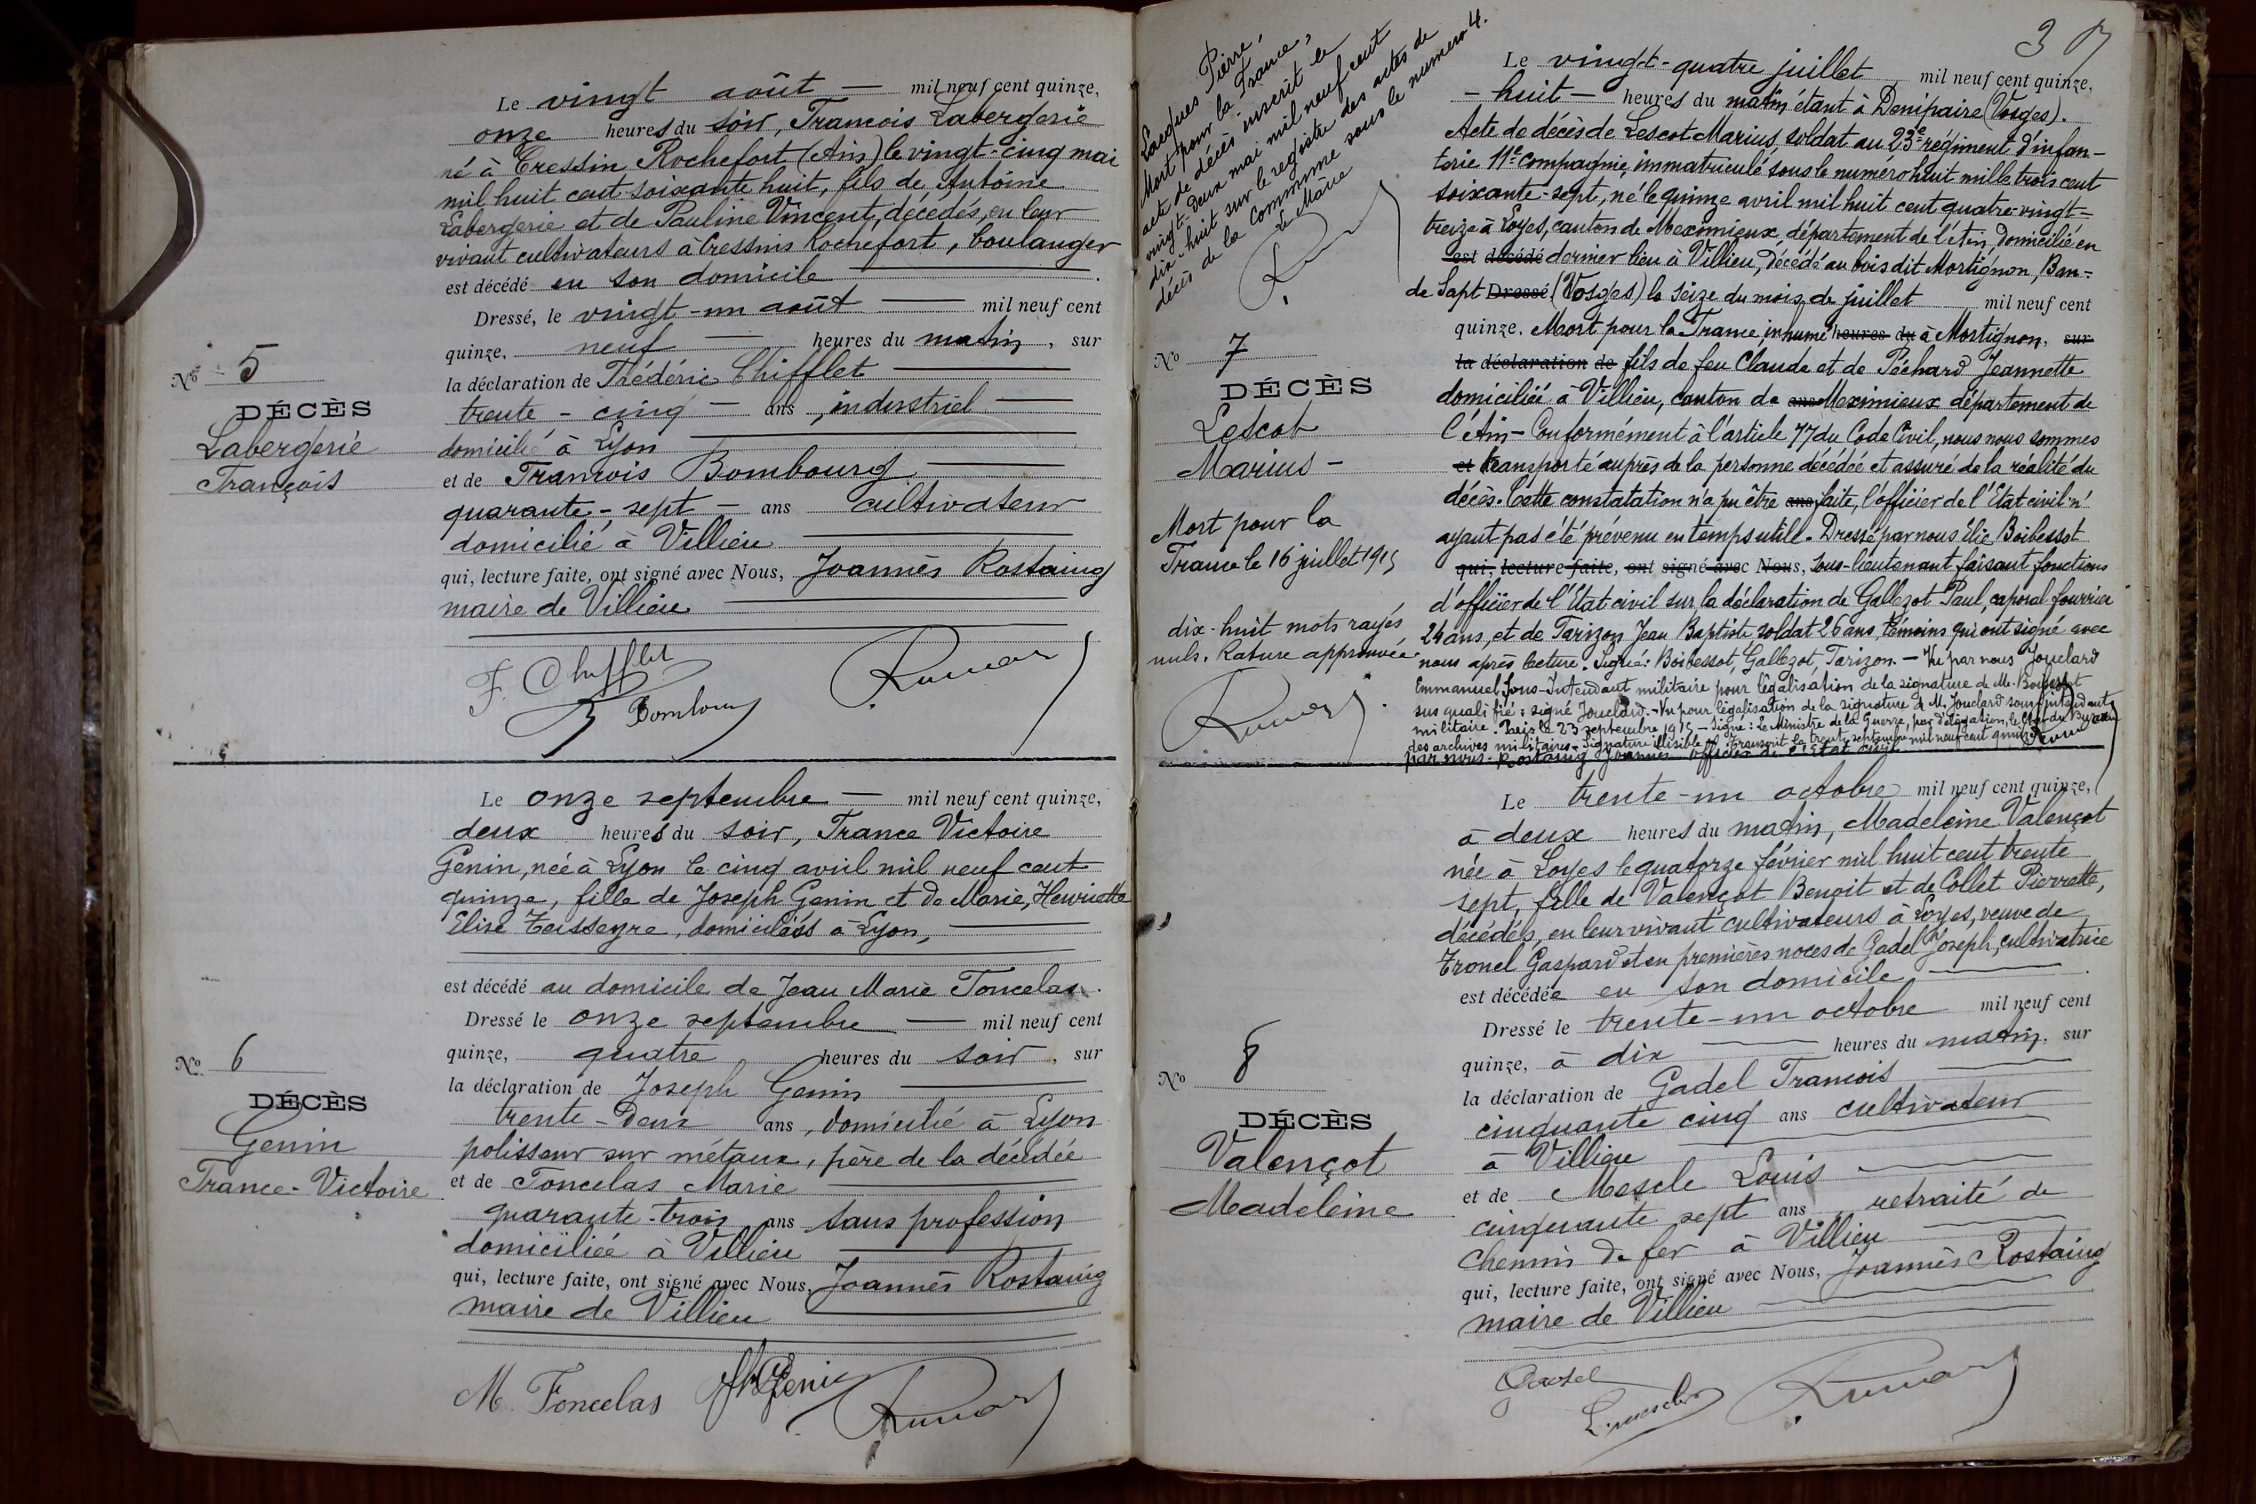 Le vingt août — mil neuf cent quinze,
onze heures du soir, Francois Labergerie
né à Cressin Rochefort (Ain) le vingt-cinq mai
mil huit cent soixante huit, fils de Antoine
Labergerie et de Pauline Vincent, décédés, en leur
vivant cultivateurs à Cressins Rochefort, boulanger
est décédé en son domicile
Dressé, le vingt-un août — mil neuf cent
quinze, neuf — heures du matin, sur
la déclaration de Frédéric Chifflet
trente-cinq — ans, industriel
domicilié à Lyon
et de Francois Bombourg
quarante-sept — ans cultivateur
domicilié à Villieu
qui, lecture faite, ont signé avec Nous, Joannès Rostaing
maire de Villieu
No 5
DÉCÈS
Labergerie
François
F. Chifflet
Bombourg
Le onze septembre — mil neuf cent quinze,
deux heures du soir, France Victoire
Genin, née à Lyon le cinq avril mil neuf cent
quinze, fille de Joseph Genin et de Marie, Henriette
Elise Teisseyre, domiciliés à Lyon,
est décédé au domicile de Jean Marie Foncelas.
Dressé le onze septembre — mil neuf cent
quinze, quatre heures du soir, sur
la déclaration de Joseph Genin
trente-deux ans, domicilié à Lyon
polisseur sur métaux, père de la décédée
et de Foncelas Marie
quarante-trois ans sans profession
domiciliée à Villieu
qui, lecture faite, ont signé avec Nous, Joannès Rostaing
maire de Villieu
No 6
DÉCÈS
Genin
France-Victoire
M. Foncelas Genin
Lacques Pierre,
Mort pour la France,
acte de décès inscrit le
vingt-deux mai mil neuf cent
dix-huit sur le registre des actes de
décès de la commune sous le numéro 4.
Le Maire
37
Le vingt-quatre juillet mil neuf cent quinze,
— huit — heures du matin étant à Denipaire (Vosges).
Acte de décès de Lescot Marius, soldat au 23e régiment d'infan-
terie 11e compagnie, immatriculé sous le numéro huit mille trois cent
soixante-sept, né le quinze avril mil huit cent quatre-vingt-
treize à Loyes, canton de Meximieux, département de l'Ain, domicilié en
est décédé dernier lieu à Villieu, décédé au bois dit Mortignon, Ban-
de Sapt Dressé (Vosges) le seize du mois de juillet mil neuf cent
quinze. Mort pour la France, inhumé heures du à Mortignon, sur
la déclaration de fils de feu Claude et de Péchard Jeannette
domiciliée à Villieu, canton de ans Meximieux département de
l'Ain — Conformément à l'article 77 du Code Civil, nous nous sommes
et transporté auprès de la personne décédée et assuré de la réalité du
décès. Cette constatation n'a pu être ans faite, l'officier de l'État civil n'
ayant pas été prévenu en temps utile. Dressé par nous Elie Boibessot
qui, lecture faite, ont signé avec Nous, Sous-lieutenant faisant fonctions
d'officier de l'État civil sur la déclaration de Gallezot Paul, caporal fourrier
24 ans, et de Tarizon Jean Baptiste soldat 26 ans, témoins qui ont signé avec
nous après lecture. Signé: Boibessot, Gallezot, Tarizon. — Vu par nous Jouclard
Emmanuel Sous-Intendant militaire pour légalisation de la signature de M. Boibessot
sus qualifié: signé Jouclard. — Vu pour légalisation de la signature de M. Jouclard sous intendant
militaire. Paris le 23 septembre 1915 — Signé: Le Ministre de la Guerre, par délégation, le Chef du Bureau
des archives militaires — Signature illisible transcrit le trente septembre mil neuf cent quinze
par nous — Rostaing Joannès officier de l'État civil
No 7
DÉCÈS
Lescot
Marius —
Mort pour la
France le 16 juillet 1915
dix-huit mots rayés
nuls. Rature approuvée.
Le trente-un octobre mil neuf cent quinze,
à deux heures du matin, Madeleine Valençot
née à Loyes le quatorze février mil huit cent trente
sept, fille de Valençot Benoit et de Collet Pierrette,
décédés, en leur vivant cultivateurs à Loyes, veuve de
Tronel Gaspard et en premières noces de Gadel Joseph, cultivatrice
est décédée en son domicile
Dressé le trente-un octobre mil neuf cent
quinze, à dix heures du matin, sur
la déclaration de Gadel Francois
cinquante cinq ans cultivateur
à Villieu
et de Mescle Louis
cinquante sept ans retraité de
chemin de fer à Villieu
qui, lecture faite, ont signé avec Nous, Joannès Rostaing
maire de Villieu
No 8
DÉCÈS
Valençot
Madeleine
Gadel
L. Mescle